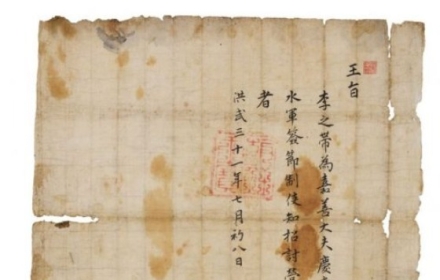 王旨
李之帶為嘉善大夫慶
水軍簽節制使知招討營
者
洪武三十一年七月初八日